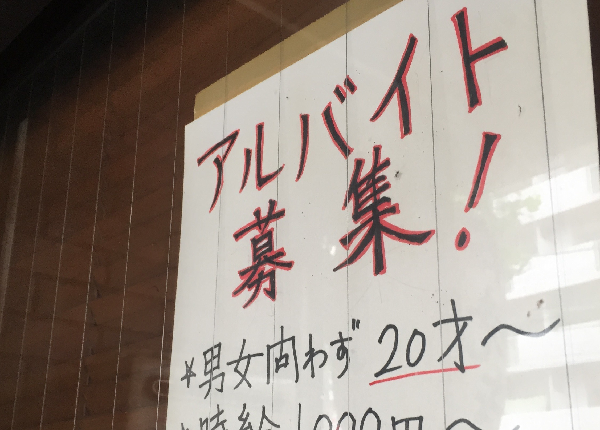 アルバイト
募集!
*男女向わず 20才〜
*時給1000円〜